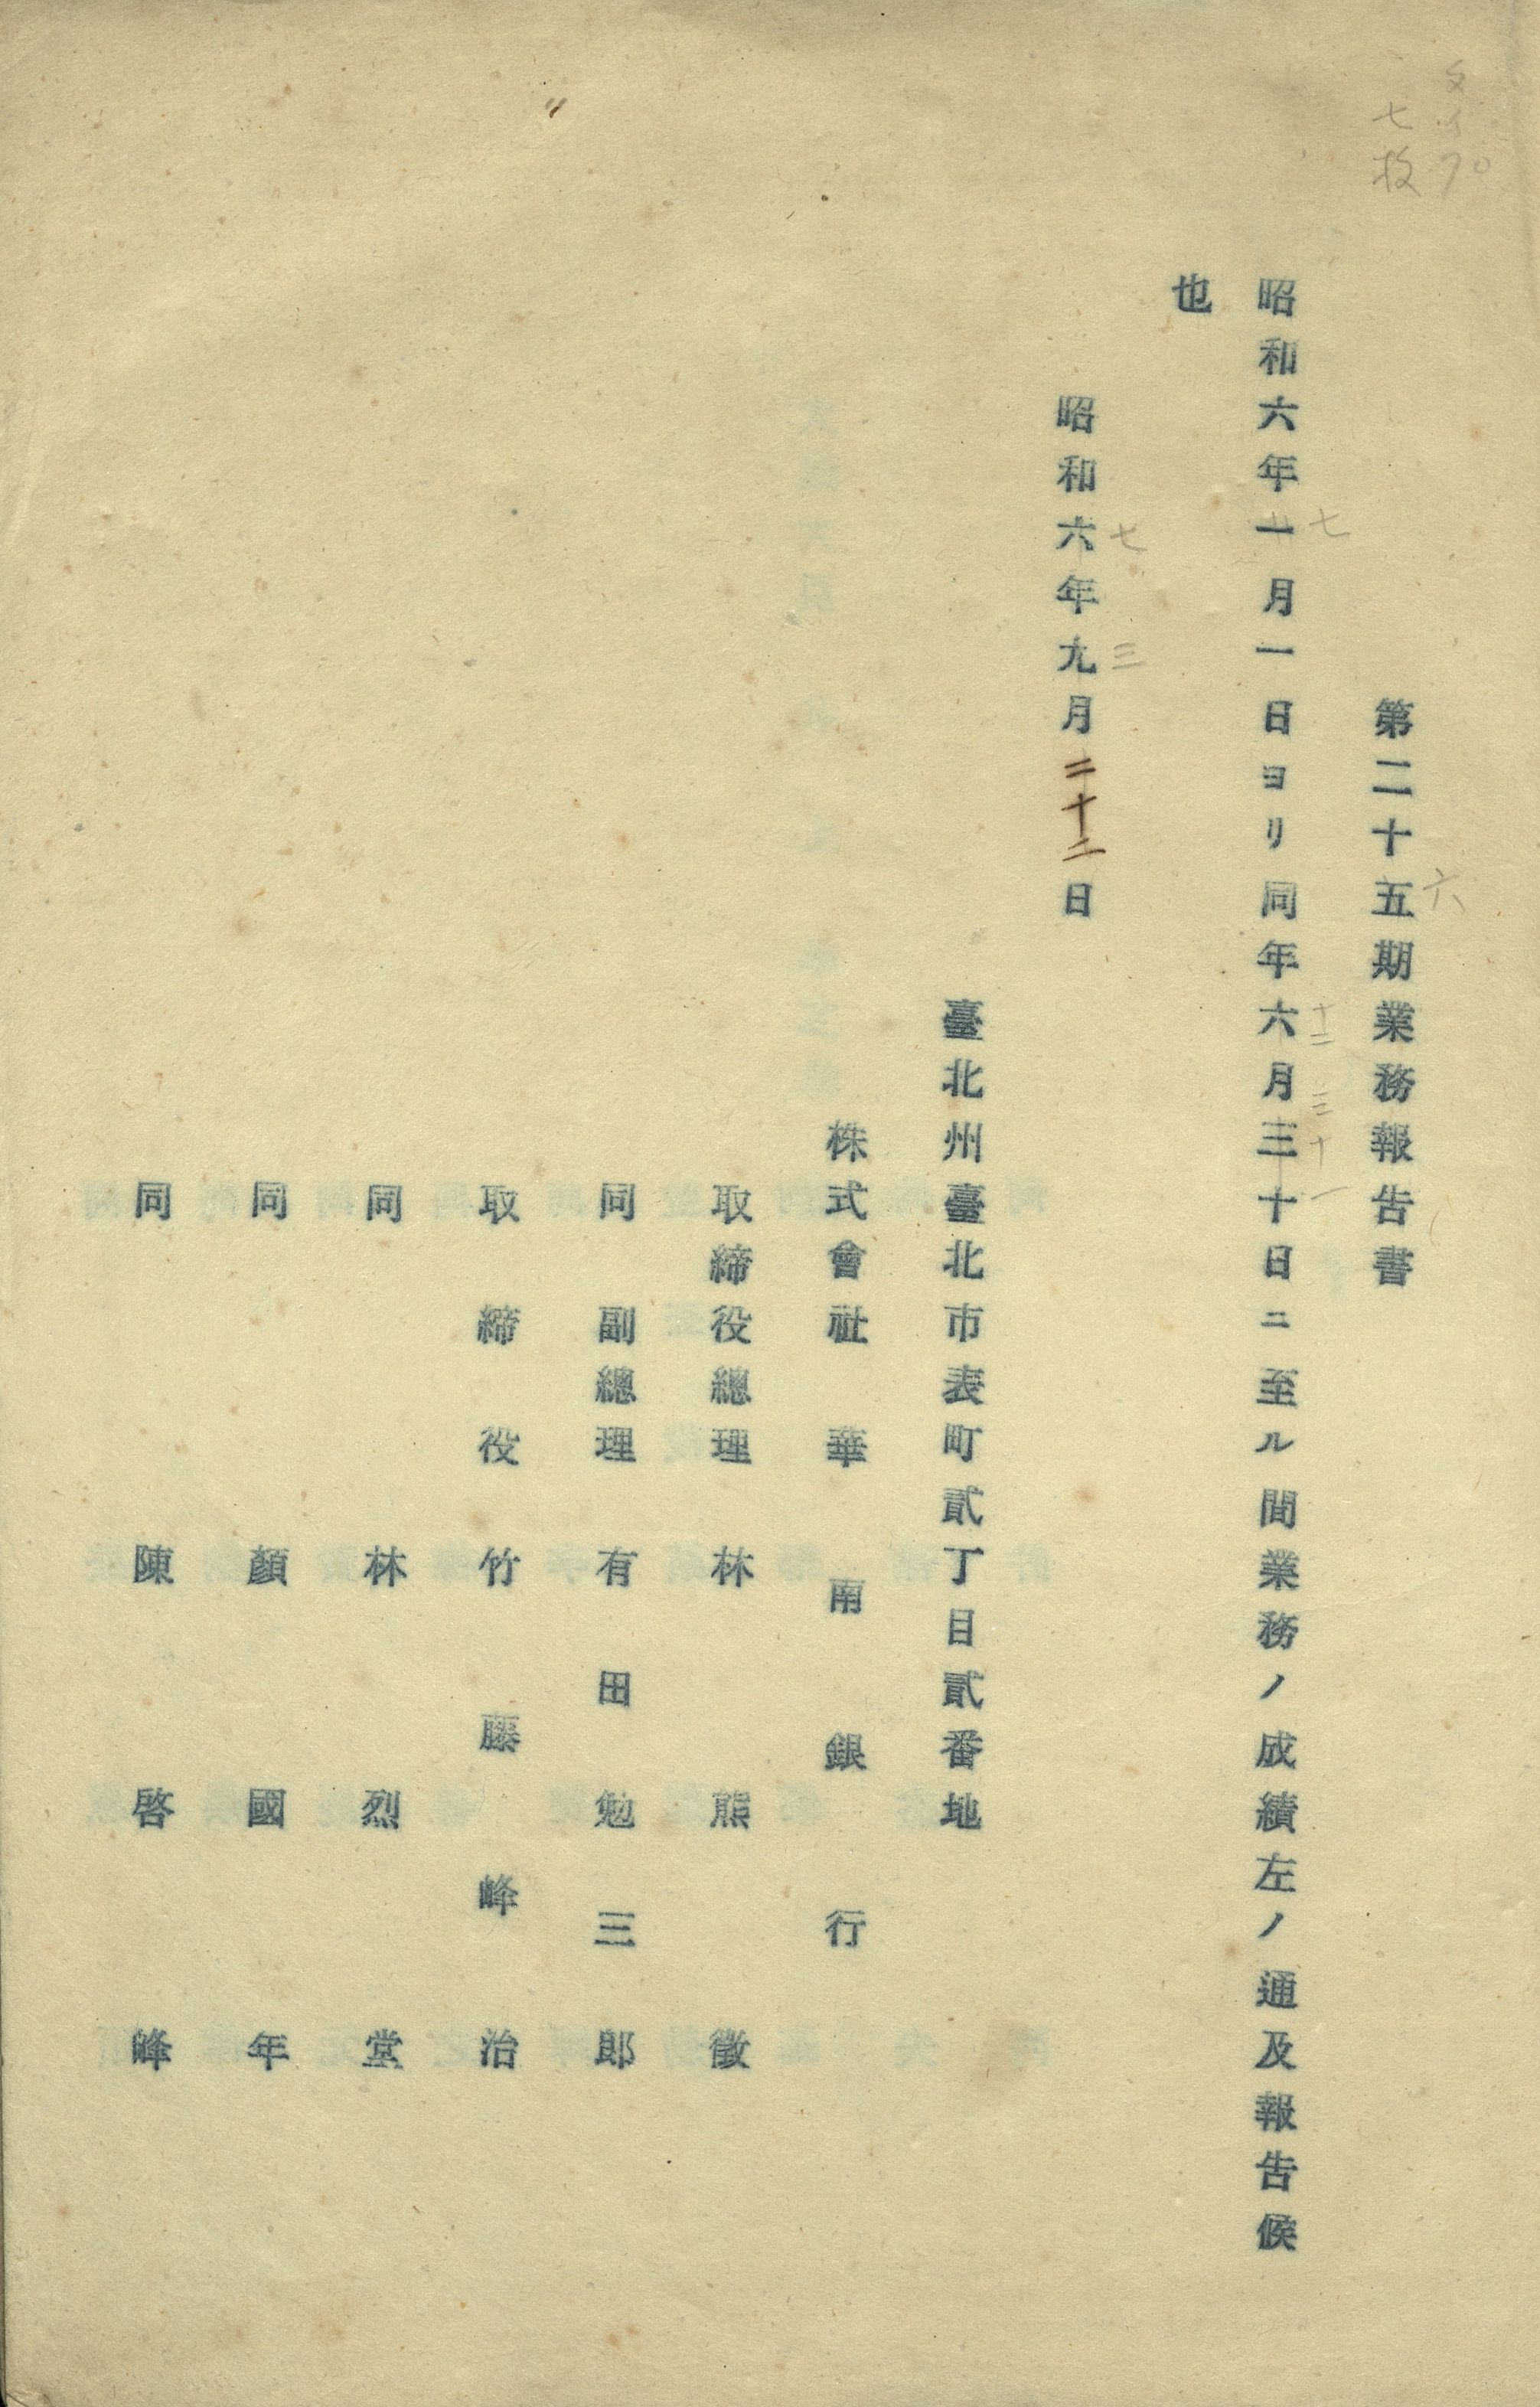 七枚
第二十五期業務報告書
六
七
十二
三十一
昭和六年一月一日ヨリ同年六月三十日ニ至ル間業務ノ成績左ノ通及報告候
也
七
三
昭和六年九月二十二日
臺北州臺北市表町貳丁目貳番地
株式會社華南銀行
取締役總理 林熊徵
同副總理 有田勉三郎
取締役 竹藤峰治
同 林烈堂
同 顏國年
同 陳啓峰